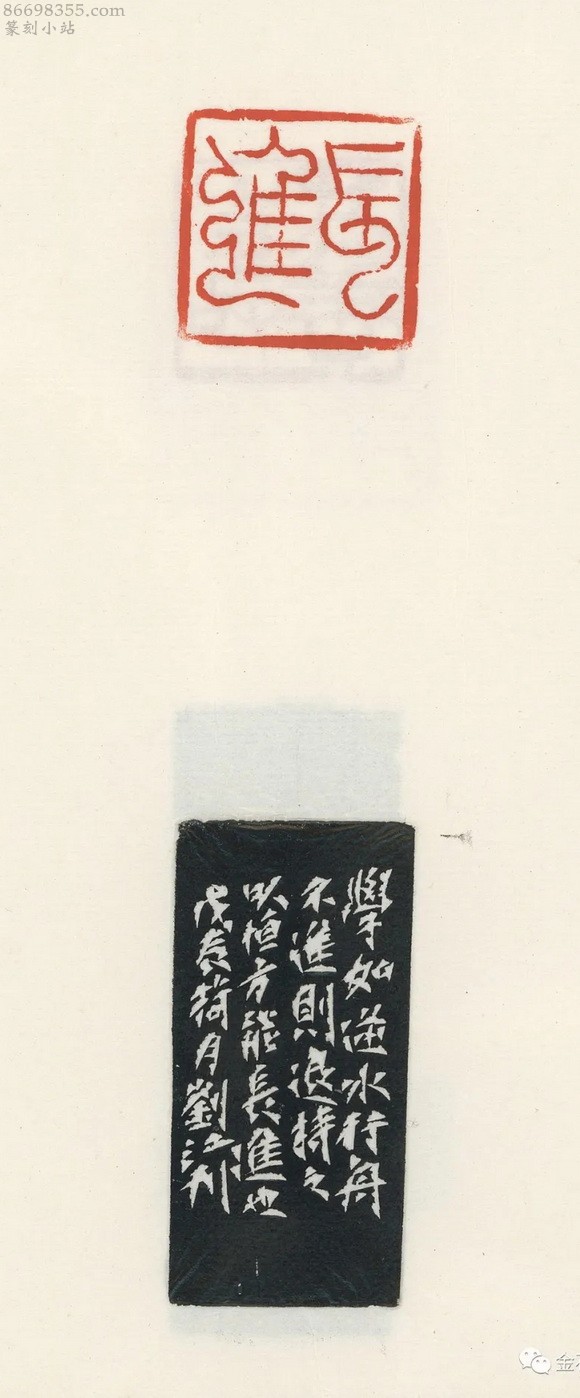 86698355.com
篆刻小站
長進
學如逆水行舟
不進則退持之
以恒方能長進也
戊戌荷月劉江刊
金石